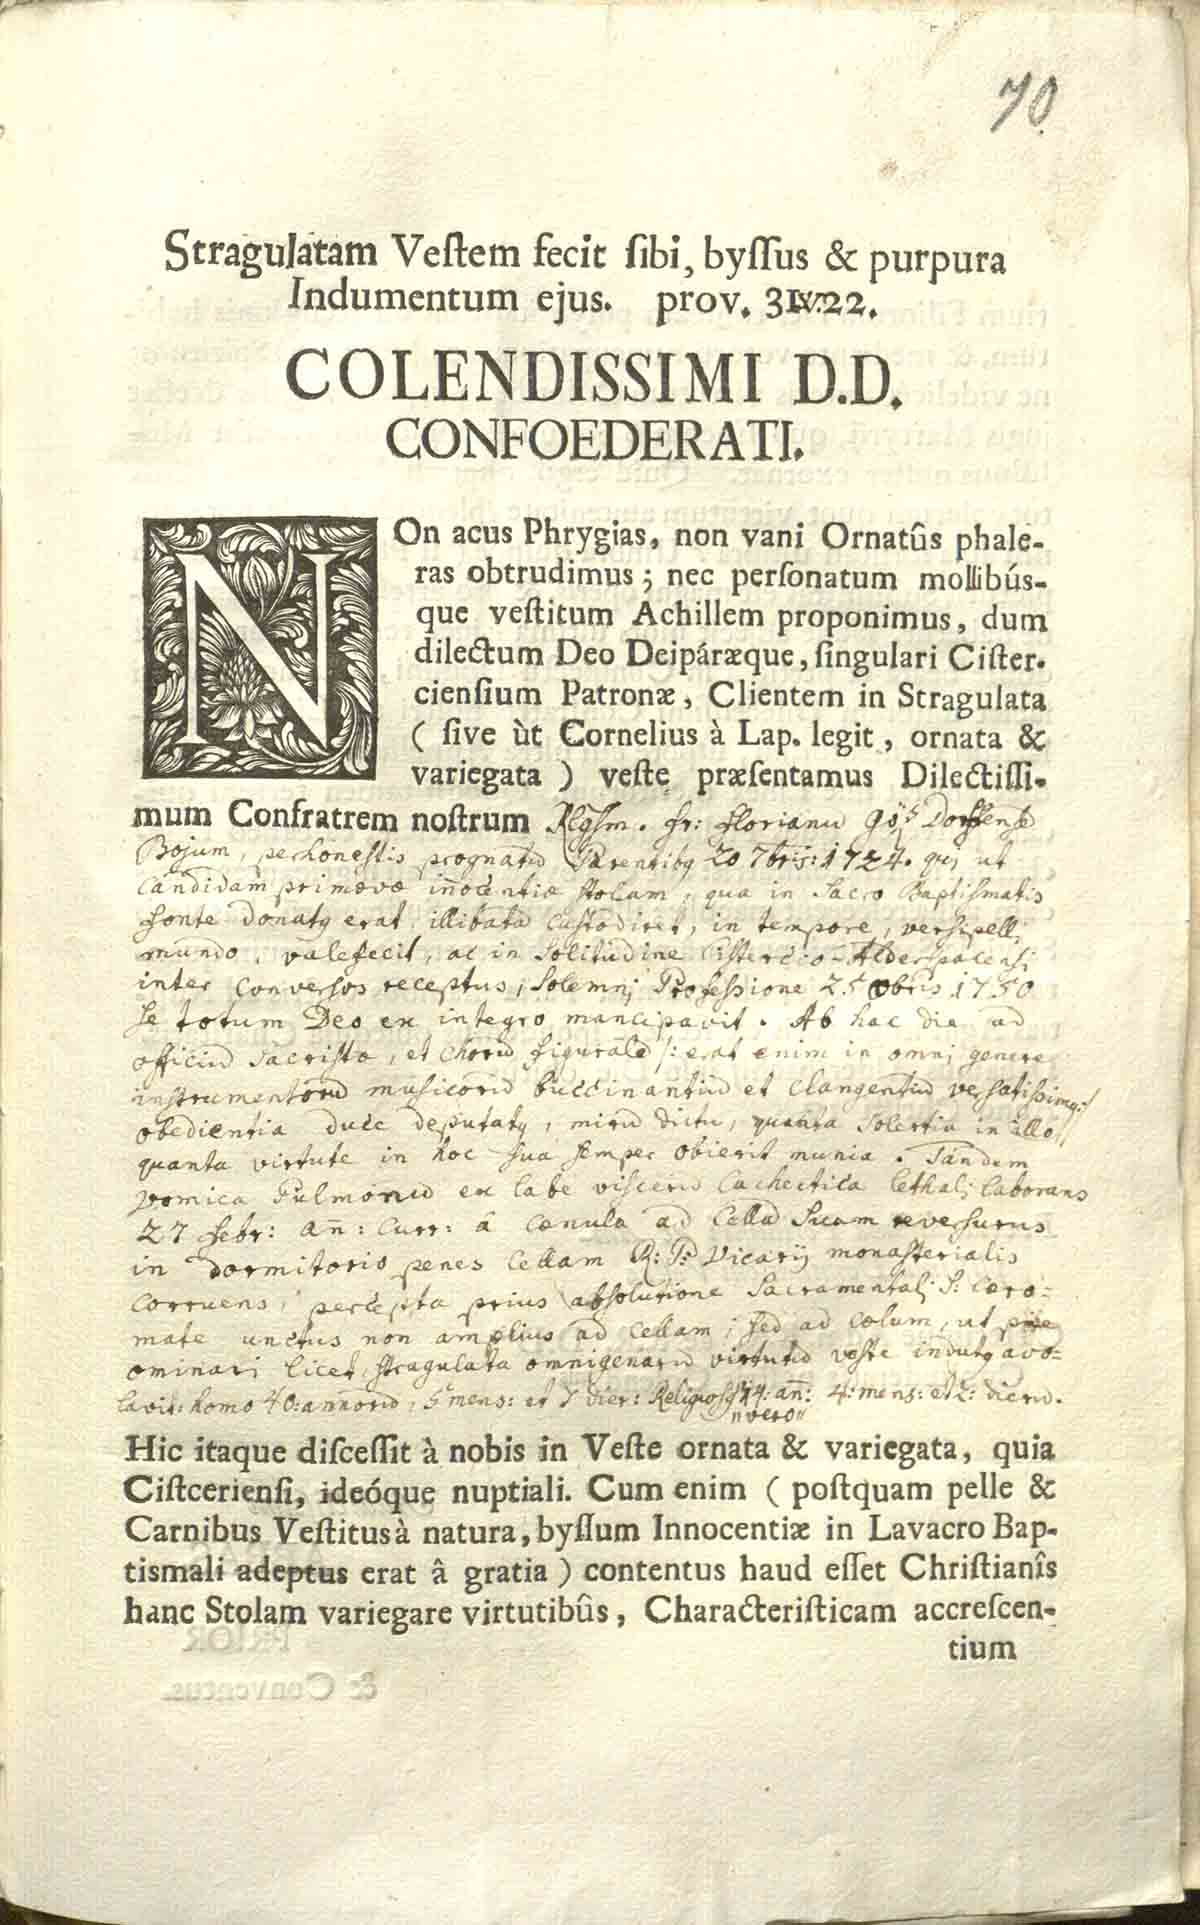 70.
Stragulatam Veſtem fecit ſibi, byſſus & purpura
Indumentum ejus. prov. 31.v.22.
COLENDISSIMI D.D.
CONFOEDERATI.
NOn acus Phrygias, non vani Ornatûs phale-
ras obtrudimus; nec perſonatum mollibús-
que veſtitum Achillem proponimus, dum
dilectum Deo Deipáræque, ſingulari Ciſter-
cienſium Patronæ, Clientem in Stragulata
( ſive ùt Cornelius à Lap. legit, ornata &
variegata ) veſte præſentamus Dilectiſſi-
mum Confratrem noſtrum Rlgsm. fr: Florianū
Bojum, perhonestis prognatū Parentibq 20 7bris: 1724. qui ut
Candidam primævæ inocentiæ stolam, qua in Sacro Baptismatis
fonte donatq erat, illibatā custodiret, in tempore, versipelli
mundo, valefecit, ac in solitudine Cistercio-Alderspacensi
inter Conversos receptus, Solemni Professione 25 8bris 1750
se totum Deo ex integro mancipavit. Ab hac die ad
officiū Sacristæ, et Chorū figuralē /: erat enim in omni genere
instrumentorū musicorū buccinantiū et Clangentiū versatissimq:/
obedientia duce deputatq, mirū dictu, quanta solertia in illo,
quanta virtute in hoc sua semper obierit munia. Tandem
vomica Pulmonū ex labe viscerū Cachectica lethali laborans
27 febr: añ: Curr: â Cœnula ad Cellā Suam reversurus
in dormitorio penes Cellam R: P: Vicarij monasterialis
Corruens, percepta prius absolutione Sacramentali S: Cero-
mate unctus non amplius ad Cellam, sed ad Cœlum, ut pie
ominari licet, stragulata omnigenarū virtutū veste indutq avo-
lavit: homo 40: annorū, 5 mens: et 7 dier: Religiosq 14: añ: 4: mens: et 2: dierū.
"vero"
Hic itaque diſceſſit à nobis in Veſte ornata & variegata, quia
Ciſtcerienſi, ideóque nuptiali. Cum enim ( poſtquam pelle &
Carnibus Veſtitus à natura, byſſum Innocentiæ in Lavacro Bap-
tismali adeptus erat â gratia ) contentus haud eſſet Chriſtianîs
hanc Stolam variegare virtutibûs, Characteriſticam accreſcen-
tium